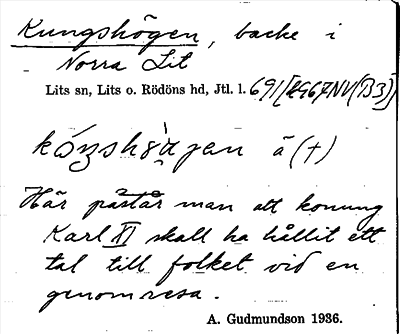 Kungshögen, backe i
Norra Lit
Lits sn, Lits o. Rödöns hd, Jtl. l. 691
ä (†)
Här påstår man att konung
Karl XI skall ha hållit ett
tal till folket vid en
genomresa.
A. Gudmundson 1936.